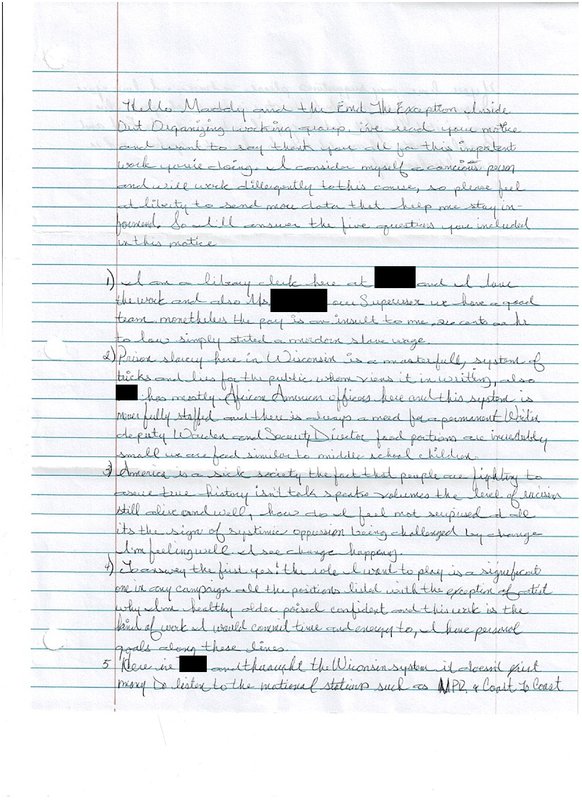 Hello Maddy and the End The Exception Inside
Out Organizing working group, i've read your notice
and want to say thank you all for this important
work you're doing. I consider myself a person
and will work dillegently to this cause, so please feel
at liberty to send more data that help me stay in-
formed. So I'll answer the five questions you included
in this notice
1) I am a library clerk here at and I love
the work and also Ms. our Supervisor we have a good
team, nonetheless the pay is an insult to me, cents an hr
to low simply stated a modern slave wage.
2) Prison slavery here in Wisconsin is a masterfull, system of
tricks and lies for the public whom views it in writing, also
has mostly African American officers here and this system is
never fully staffed and there is always a need for a permanent
deputy Warden and Security Director food portions are incredibly
small we are feed similar to middle school children.
3) America is a sick society the fact that people are fighting to
true history isn't talk volumes the level of racism
still alive and well, how do I feel not surprised at all
its the sign of systimic oppression being challenged by change
I'm feeling well I see change happening.
4) To answer the first yes! the role I want to play is a significat
one in any campaign all the positions listed with the exception of artist
why I'm healthy older poised confident and this work is the
kind of work I would commit time and energy to, I have personal
goals along these lines.
5 Here in and the Wiconsin system it doesn't
many Do listen to the national stations such as & Coast to Coast